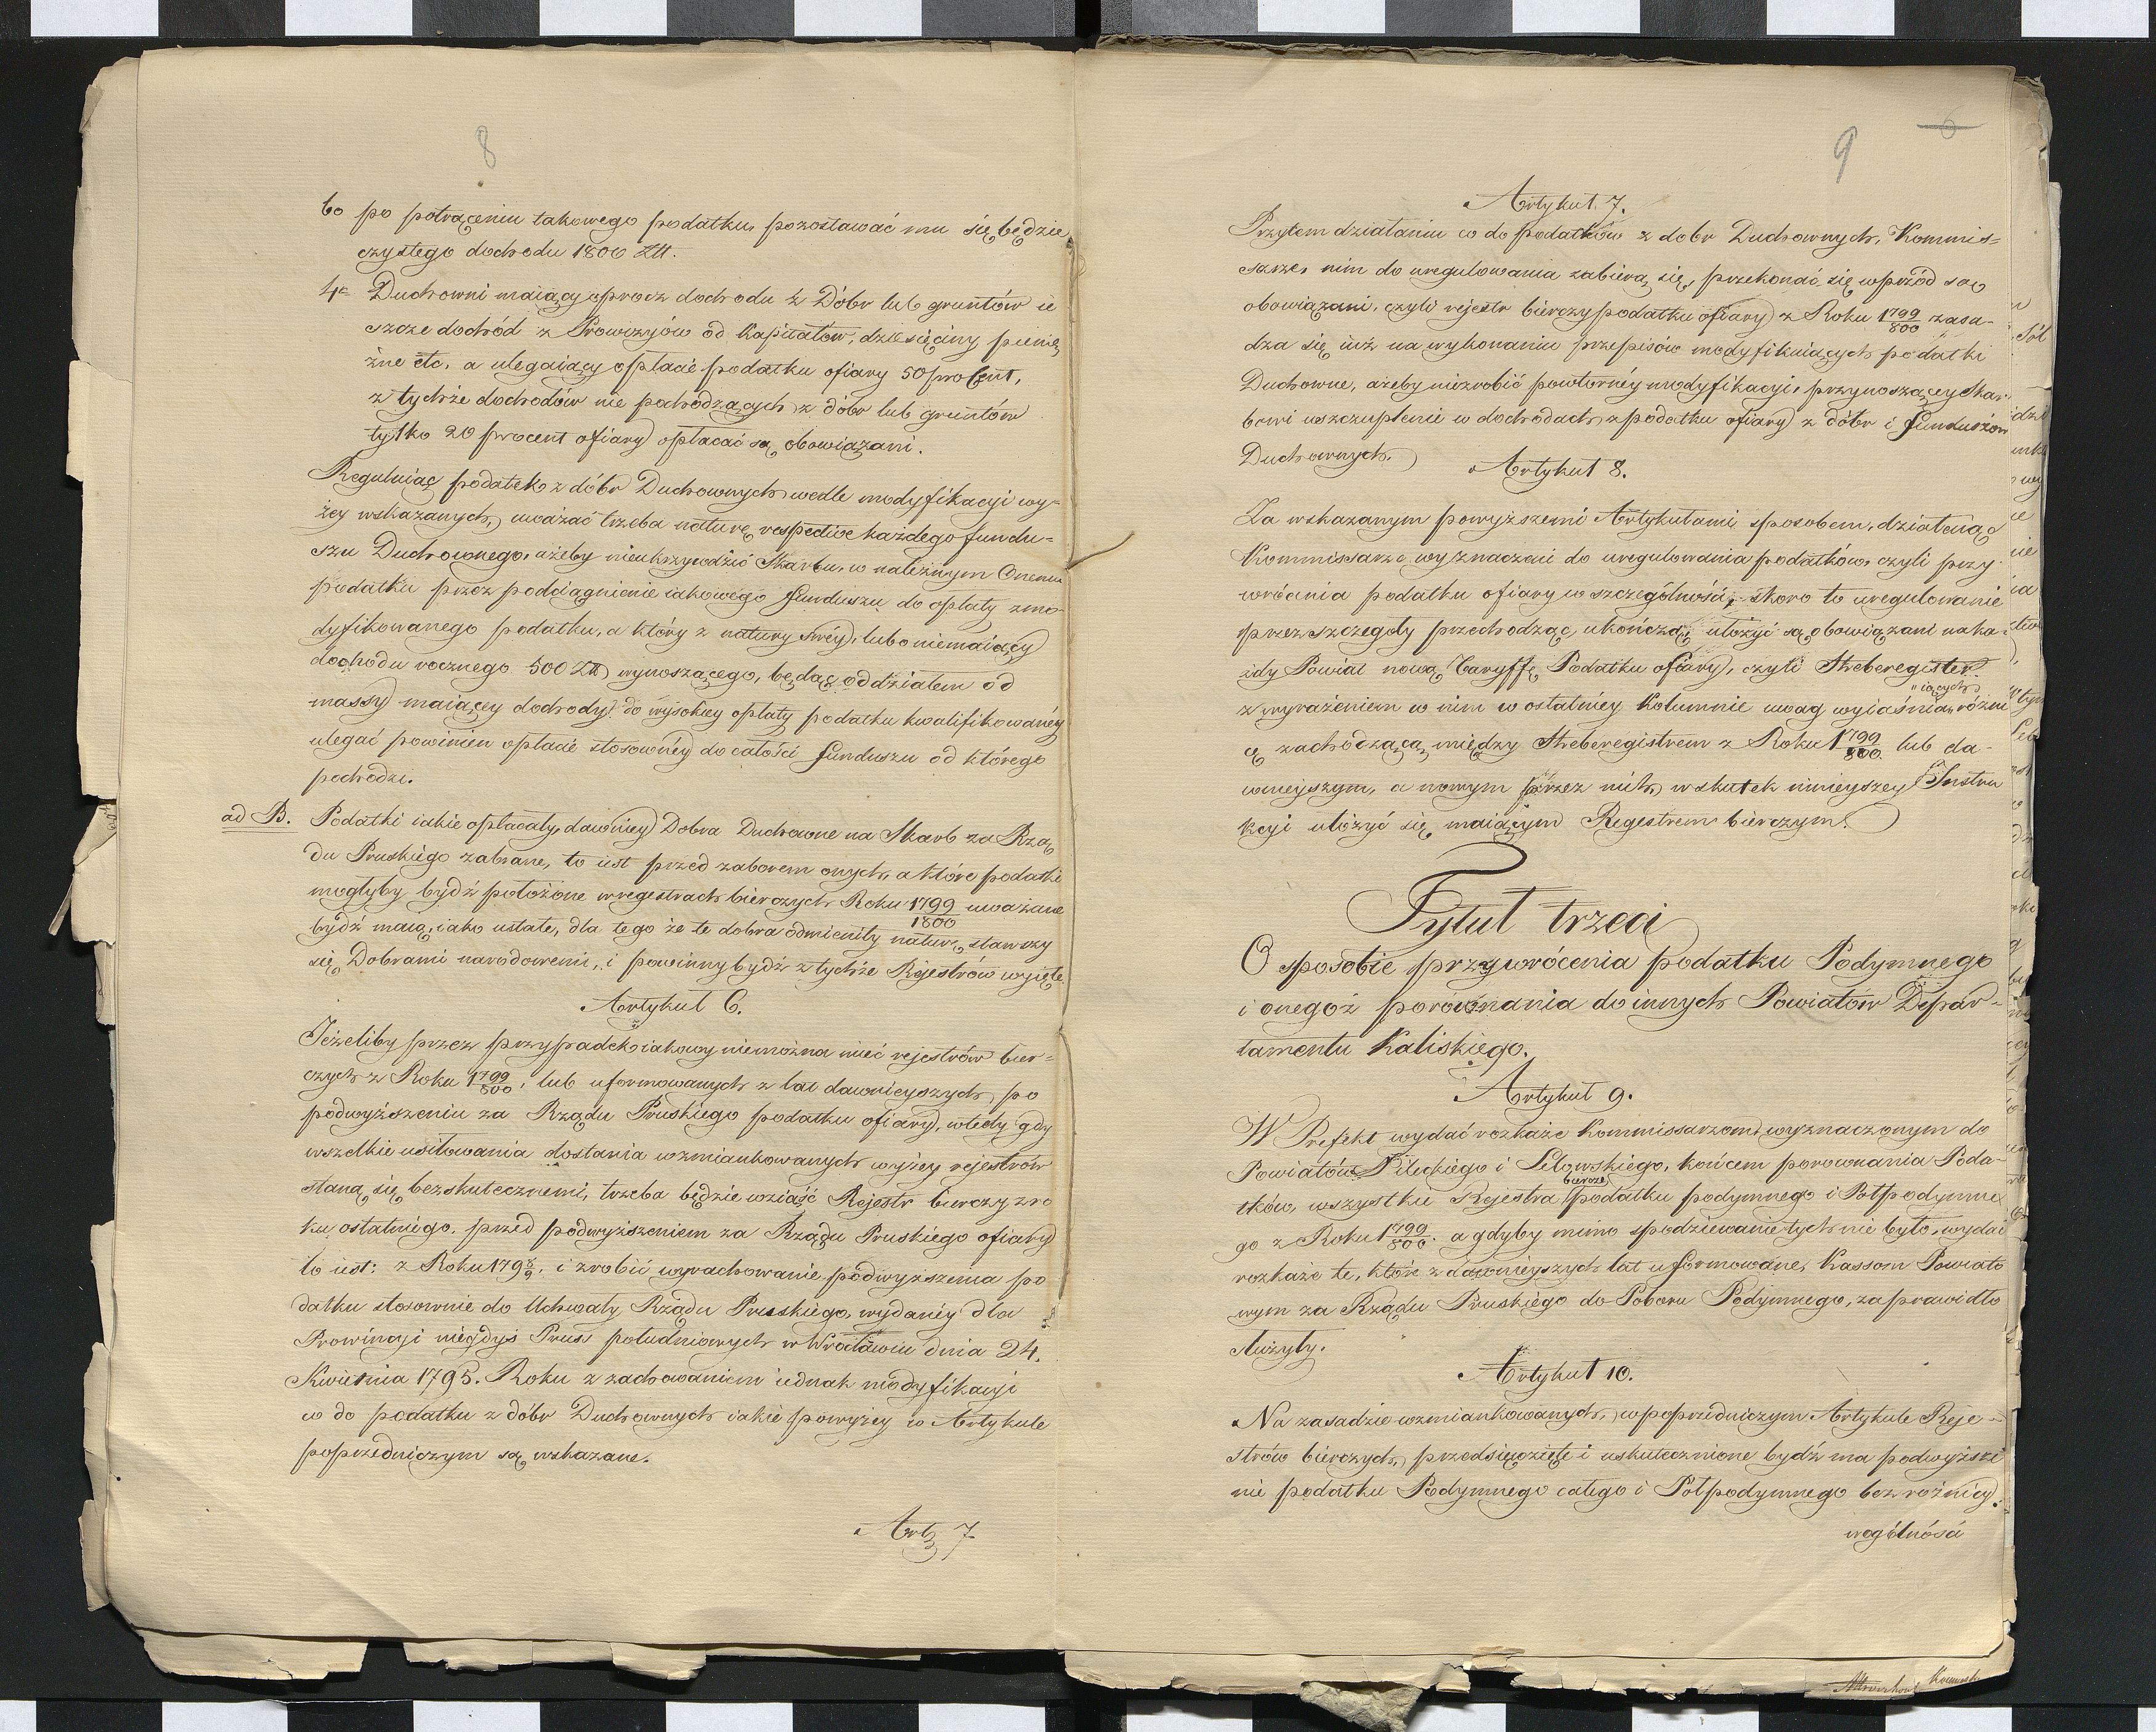 8
bo po potrąceniu takowego podatku, pozostawać mu się będzie
czystego dochodu 1800 Złł.
4e Duchowni maiący oprocz dochodu z Dóbr lub gruntów ie
szcze dochód z Prowizyiów od kapitałów, dziesięciny pienię
żne etc, a ulegaiący opłacie podatku ofiary 50 proCent,
z tychże dochodów nie pochodzących z dóbr lub gruntów
tylko 20 procent ofiary opłacać są obowiązani.
Reguluiąc podatek z dóbr Duchownych wedle modyfikacyi wy-
żey wskazanych, uważać trzeba naturę respective każdego fundu=
szu Duchownego, ażeby nieukrzywdzić Skarbu, w należnym Onemu
podatku przez poddciągnienie iakowego funduszu do opłaty zmo-
dyfikowanego podatku, a który z natury swéy, lubo niemaiący
dochodu rocznego 500 Złł wynoszącego, będąc oddziałem od
massy maiącey dochody do wysokiey opłaty podatku kwalifikowanéy
ulegać powinien opłacie stosownéy do całości funduszu od którego
pochodzi.
ad B. Podatki iakie opłacały dawniey Dobra Duchowne na Skarb za Rzą
du Pruskiego zabrane, to iest przed zaborem onych, a które podatki
mogłyby bydź położone w regestrach bierczych Roku 1799/1800 uważane
bydź maią, iako ustałe, dla tego że te dobra odmieniły naturę, stawszy
się Dobrami narodowemi, i powinny bydź z tychże Rejestrów wyięte.
Artykuł 6.
Jeżeliby przez przypadek iakowy niemożna mieć rejestrów bier=
czych z Roku 1799/800, lub uformowanych z lat dawnieyszych, po
podwyższeniu za Rządu Pruskiego podatku ofiary, wtedy gdy
wszelkie usiłowania dostania wzmiankowanych wyżey rejestrów
staną się bezskutecznemi, trzeba będzie wziąść Rejestr bierczy z ro
ku ostatniego, przed podwyższeniem za Rządu Pruskiego ofiary
to iest: z Roku 179 8/9, i zrobić wyrachowanie podwyższenia po
datku stosownie do Uchwały Rządu Pruskiego, wydanéy dla
Prowincyi niegdyś Pruss południowych w Wrocławiu dnia 24.
Kwietnia 1795. Roku z zachowaniem iednak modyfikacyi
co do podatku z dóbr Duchownych iakie powyżey w Artykule
poprzedniczym są wskazane.
Art 7
9
6
Artykuł 7.
Przytem działaniu co do podatków z dobr Duchownych, Kommis=
sarze, nim do uregulowania zabiorą się, przekonać się wprzód są
obowiązani, czyli rejestr bierczy podatku ofiary z Roku 1799/800 zasa-
dza się iuż na wykonaniu przepisów modyfikuiących podatki
Duchowne, ażeby niezrobić powtornéy modyfikacyi, przynoszącey Skar
bowi uszczuplenie w dochodach, z podatku ofiary z dóbr i funduszów
Duchownych.
Artykuł 8.
Za wskazanym powyższemi Artykułami sposobem, działaiąc
Kommissarze wyznaczeni do uregulowania podatków, czyli przy
wrócenia podatku ofiary w szczególności, skoro to uregulowanie
przez szczegóły przechodząc, ukończą, ułożyć są obowiązani na ka-
żdy Powiat nową Taryffę Podatku ofiary, czyli Heberegister
z wyrażeniem w nim w ostatniéy kolumnie uwag wyiaśnia„iących„ różni
cę zachodzącą między Heberegistrem z Roku 1799/800 lub da-
wnieyszym, a nowym przez nich, w skutek ninieyszey Instru
kcyi ułożyć się maiącym Regestrem bierczym.
Tytuł trzeci
O sposobie przywrócenia podatku Podymnego
i onegoż porównania do innych Powiatów Depar-
tamentu Kaliskiego.
Artykuł 9.
W Prefekt wydać rozkaże Kommissarzom wyznaczonym do
Powiatów Pileckiego i Lelowskiego, końcem porownania Poda-
tków, wszystkie Rejestra bierczé podatku podymnego i Półpodymne
go z Roku 1799/800. a gdyby mimo spodziewanie tych nie było, wydać
rozkaże te, które z dawnieyszych lat uformowane, Kassom Powiato
wym za Rządu Pruskiego do Poboru Podymnego, za prawidło
służyły.
Artykuł 10.
Na zasadzie wzmiankowanych, w poprzedniczym Artykule Reje-
strów bierczych, przedsięwzięte i uskutecznione bydź ma podwyższe
nie podatku Podymnego całego i Półpodymnego bez różnicy.
wogólności